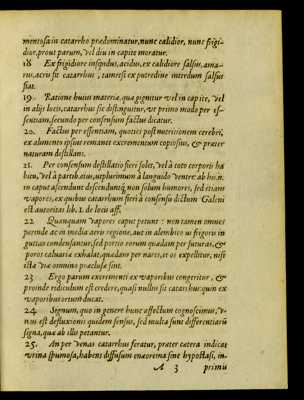 mentosa in catarrho prædominatur, nunc calidior, nunc frigi-
dior, prout parum, vel diu in capite moratur.
18 Ex frigidiore insipidus, acidus, ex calidiore salsus, ama-
rus, acris fit catarrhus, tametsi ex putredine interdum salsus
fiat.
19. Ratione huius materiæ, quæ gignitur vel in capite, vel
in alijs locis, catarrhus sic distinguitur, vt primo modo per es-
sentiam, secundo per consensum factus dicatur.
20. Factus per essentiam, quoties post nutritionem cerebri,
ex alimento ipsius remanet excrementum copiosum, & præter
naturam destillans.
21. Per consensum destillatio fieri solet, vel à toto corporis ha
bitu, vel à partib. atus, utplurimum à languido ventre: ab his. n.
in caput ascendunt descenduntq́ non solum humores, sed etiam
vapores, ex quibus catarrhum fieri à consensu dictum Galeni
est autoritas lib. 1. de locis aff.
22 Quanquam vapores caput petunt: non tamen omnes
perinde ac in media aeris regione, aut in alembico ui frigoris in
guttas condensantur, sed portio eorum quædam per suturas, &
poros caluariæ exhalat, quædam per nares, et os expellitur, nisi
istæ viæ omnino præclusæ sint.
23 Ergo parum excrementi ex vaporibus congeritur, &
proinde ridiculum est credere, quasi nullus sit catarrhus: quin ex
vaporibus ortum ducat.
24. Signum, quo in genere hunc affectum cognoscimus, v-
nus est defluxionis quidem sensus, sed multa sunt differentiarū
signa, quæ ab illis petantur.
25. An per venas catarrhus feratur, præter cætera indicat
vrina spumosa, habens diffusum enæorema sine hypostasi, in-
A 3 primis